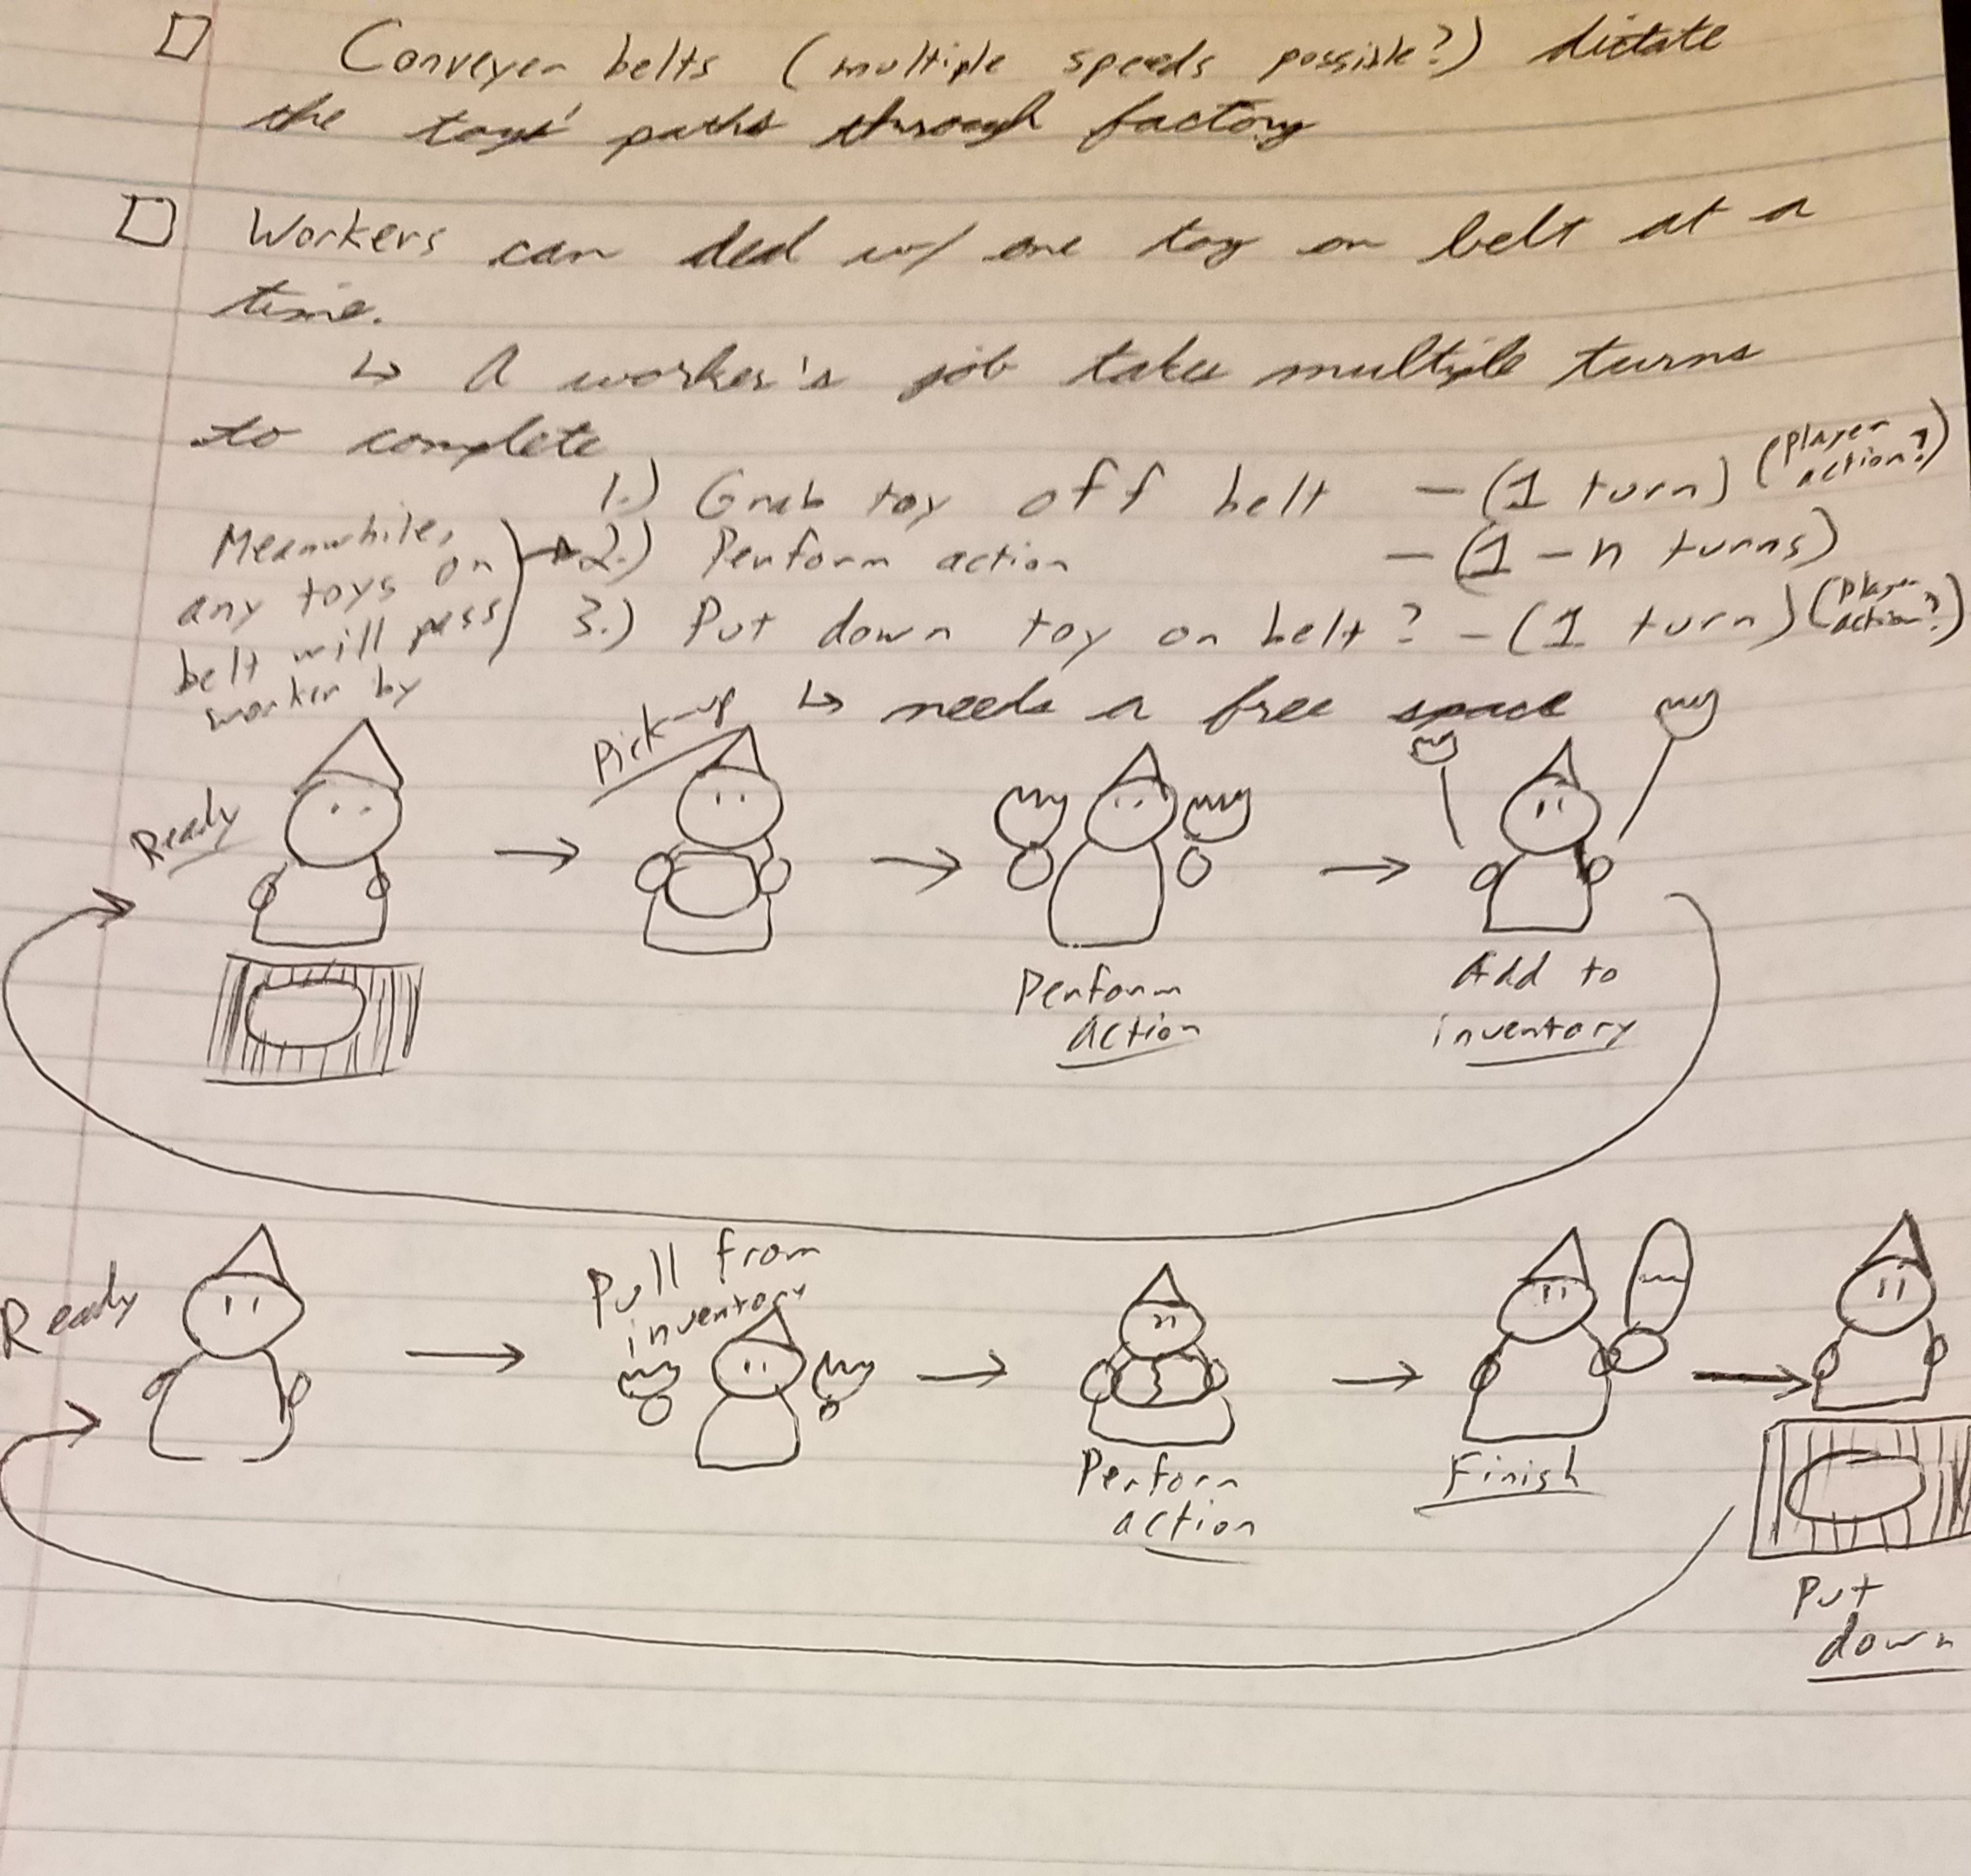 Conveyer belts (multiple speeds possible?) dictate
the toys' paths through factory
Workers can deal w/ one toy on belt at a
time.
↳ A worker's job takes multiple turns
to complete
1.) Grab toy off belt - (1 turn) (player action?)
2.) Perform action - (1-n turns)
3.) Put down toy on belt? - (1 turn) (player action?)
↳ needs a free space
Meanwhile,
any toys on
belt will pass
worker by
Ready
Pick-up
Perform
action
Add to
inventory
Ready
Pull from
inventory
Perform
action
Finish
Put
down